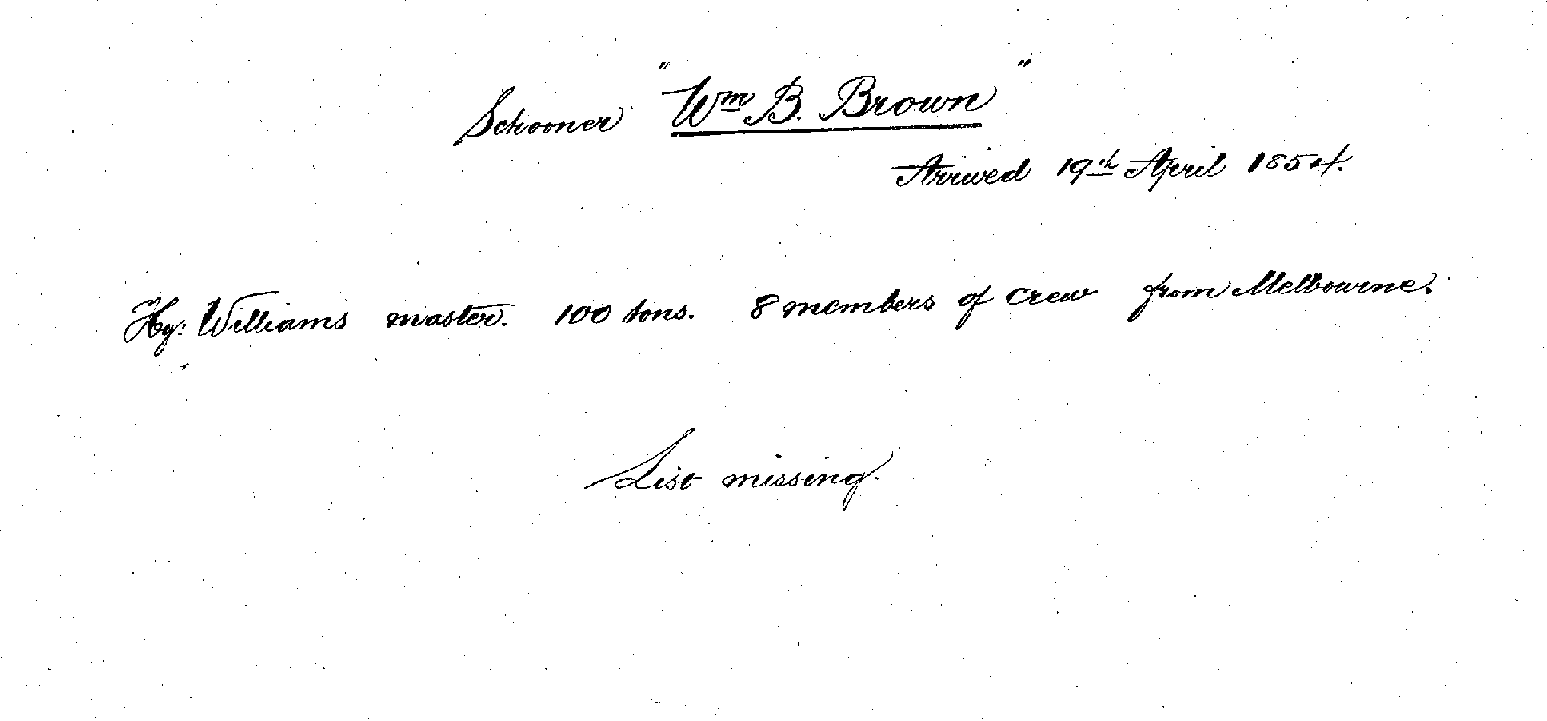 Schooner "Wm B. Brown"
Arrived 19th April 1854.
Hy: Williams master. 100 tons. 8 members of crew from Melbourne.
List missing.